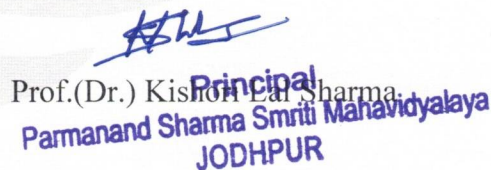 Prof.(Dr.) Kishori Lal Sharma
Principal
Parmanand Sharma Smriti Mahavidyalaya
JODHPUR